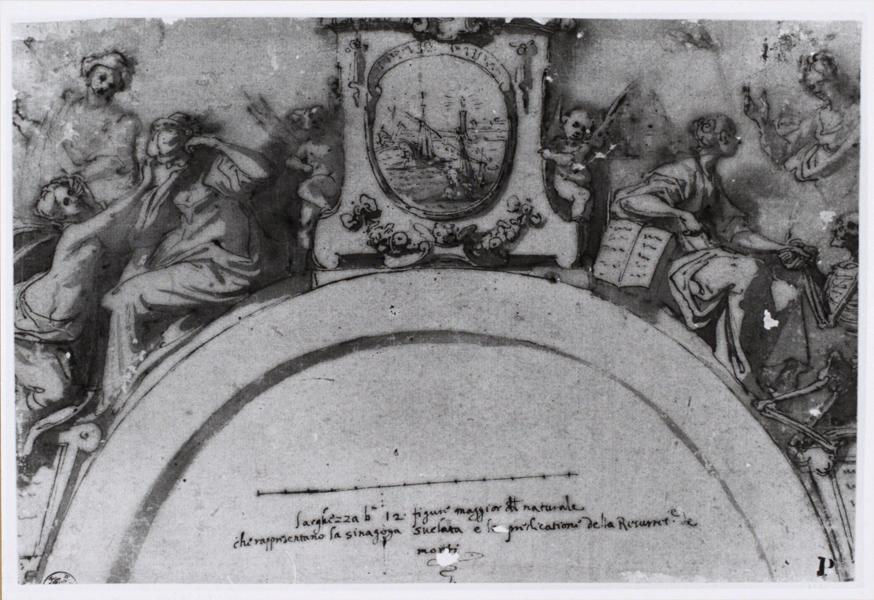 larghezza b.ª 12 figure maggior del naturale
che rappresentano la sinagoga suelata e la predicatione della Resurret.e de
morti
P